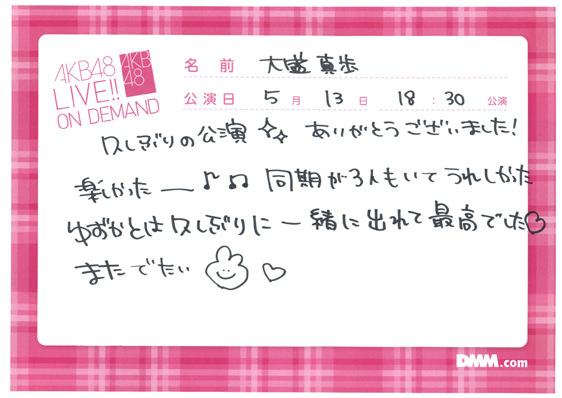 AKB48
LIVE!!
ON DEMAND
AKB
48
名前 大盛真歩
公演日 5月13日 18:30公演
久しぶりの公演 ありがとうございました!
楽しかったー♪♫ 同期が3人もいてうれしかった
ゆずかとは久しぶりに一緒に出れて最高でした♡
またでたい ♡
DMM.com